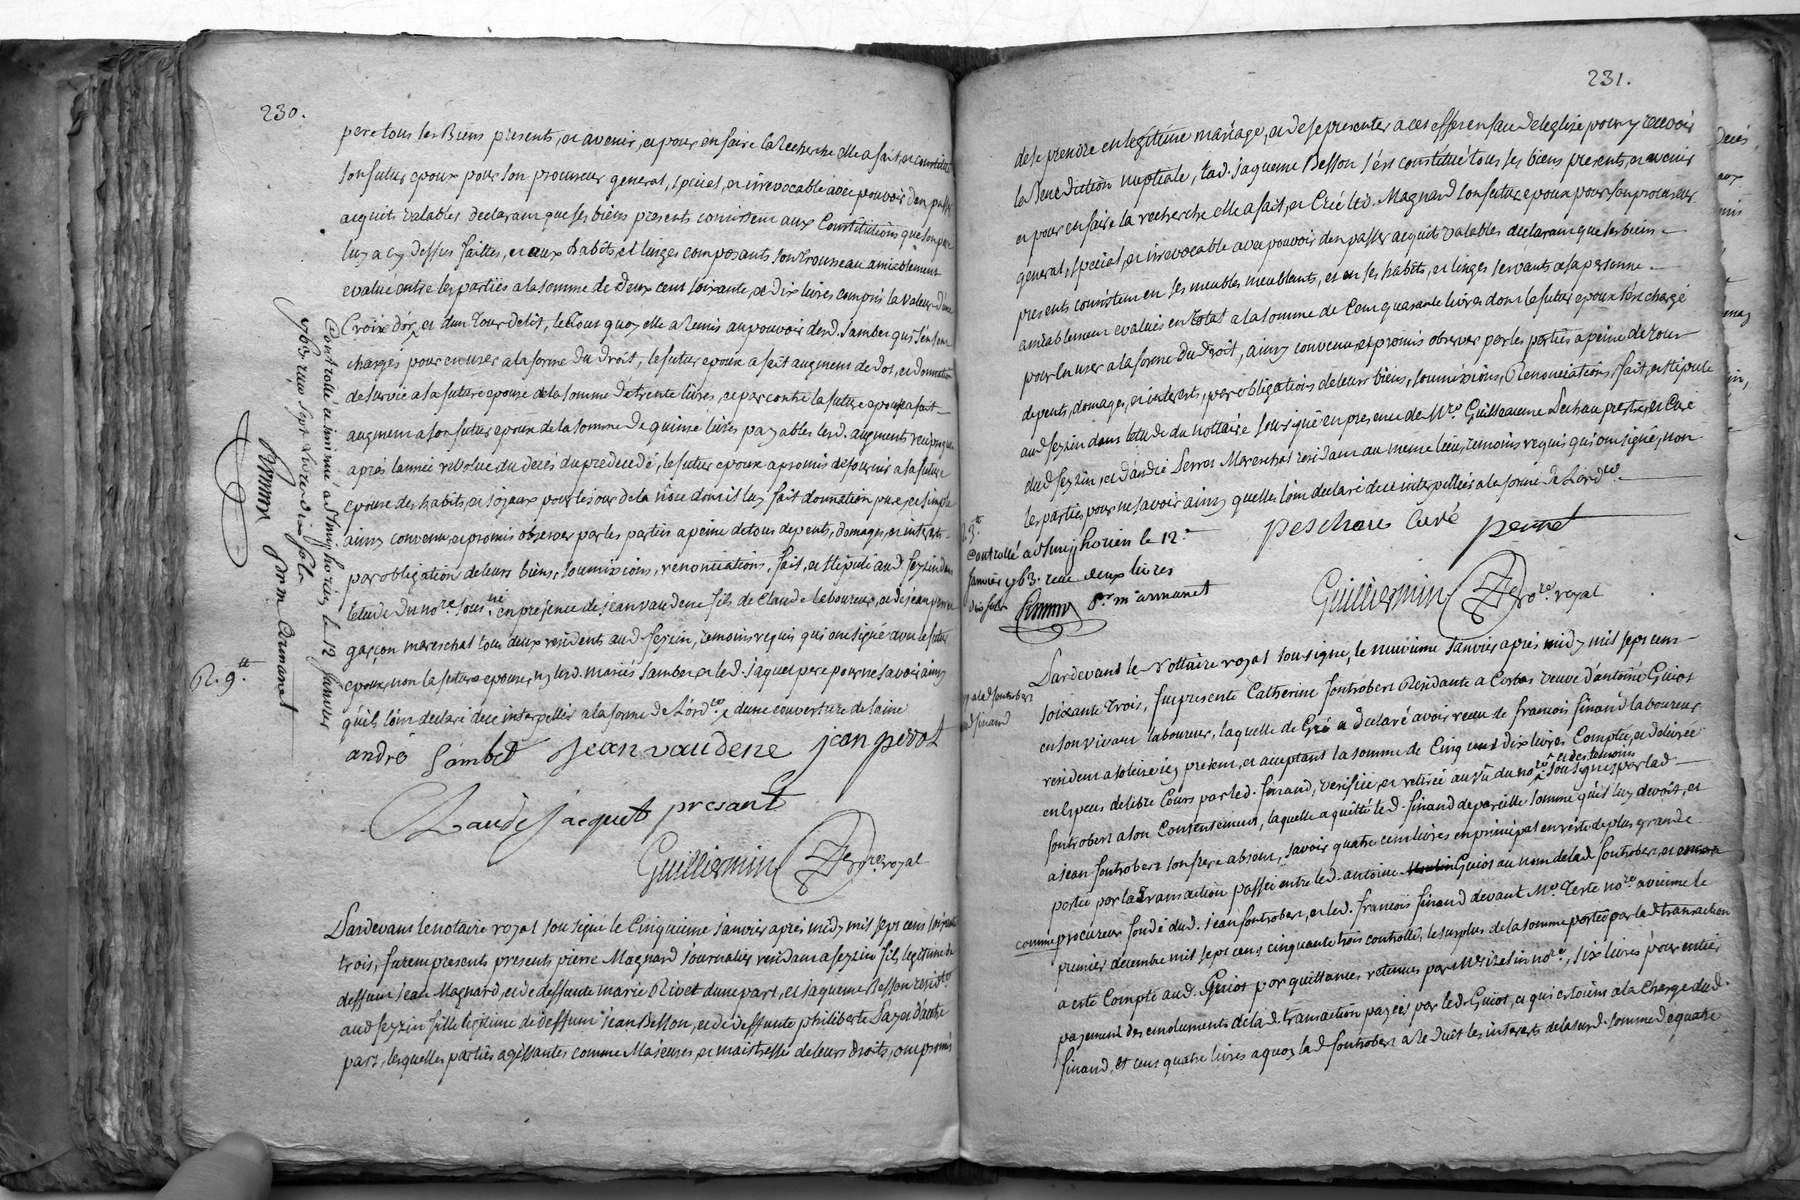 230.
pere tous ses Biens presents, et avenir, et pour en faire la recherche elle a fait, et constitué
son futur epoux pour son procureur general, special, et irrevocable avec pouvoir d'en passer
acquits valables declarant que ses biens presents consistent aux Constitutions que son pere
luy a cy dessus faittes, et aux habits et linges composants son trousseau amiablement
evalué entre les parties a la somme de Deux cent soixante, et dix livres compris la valeur d'une
Croix d'or, et d'un tour de lit, le tout quoy elle a remis au pouvoir dud. sambet qui s'en sont
chargés pour en user a la forme du droit, le futur epoux a fait augment de dot, et donnation
de survie a sa future epouse de la somme de trente livres, et par contre la future epouse a fait
augment a son futur epoux de la somme de quinze livres payables lesd. augments reciproques
après l'année revolue du decés du predecedé, le futur epoux a promis de fournir a sa future
epouse des habits, et joyaux pour le jour de la nôce dont il luy fait donnation pure, et simple
ainsy convenu, et promis observer par les parties a peine de tous depents, domages, et interets
par obligation de leurs biens, soumissions, renonciations, fait, et stipulé aud. seyzin dans
l'etude du nore. sousné. en presence de jean vaudene fils de Claude laboureur, et de jean perrot
garçon mareschal tous deux residents aud. seyzin, temoins requis qui ont signé avec le futur
epoux, non la future epouse, ny lesd. mariés sambet et led. jaquet pere pour ne savoir ainsy
qu'ils l'ont declaré de ce interpellés a la forme de l'ordce. d'une couverture de laine
andré sambet jean vaudene jean perot
Claude jacquet presant
Guilliermin nre. royal
Controllé et insinué a St Simphorien le 12 janvier
1763 reçu sept livres dix sols
pr. m. armanet
R. 9tt
Pardevant le notaire royal sousigné le Cinquieme janvier après midy mil sept cent soixante
trois, furent presents pierre Magnard journalier residant a seyzin fils legitime de
deffunt jean Magnard, et de deffunte marie Rivet d'une part, et jaqueme Besson residte.
aud seyzin fille legitime de deffunt jean Besson, et de deffunte philiberte Payer d'autre
part, lesquelles parties agissantes comme Majeures, et maistresse de leurs droits, ont promis
231.
de se prendre en legitime mariage, et de se presenter a ces effets en face de l'eglise pour y recevoir
la Benediction nuptiale, lad. jaqueme Besson s'est constitué tous ses biens presents, et avenir
et pour en faire la recherche elle a fait, et Créé led. Magnard son futur epoux pour son procureur
general, special, et irrevocable avec pouvoir d'en passer acquits valables declarant que ses biens
presents consistent en ses meubles meublants, et en ses habits, et linges servants a sa personne
amiablement evalués en total a la somme de Cent quarante livres dont le futur epoux s'est chargé
pour en user a la forme du droit, ainsy convenu, et promis observer par les parties a peine de tous
depents, domages, et interets, par obligations de leurs biens, soumissions, Renonciations, fait, et stipulé
aud seyzin dans l'etude du nottaire sousigné en presence de Mre. Guilleaume Peschau prestre, et Curé
dud seyzin, et d'andré Perrot Mareschal residant au meme lieu, temoins requis qui ont signé, non
les parties pour ne savoir ainsy qu'elles l'ont declaré de ce interpellées a la forme de l'ordce.
peschau Curé perrot
Guilliermin nore. royal
R. 3tt
Controllé a St Simphorien le 12e.
janvier 1763. reçu deux livres
dix sols
pr. m. armanet
Pardevant le Nottaire royal sousigné, le neuvieme janvier après midy mil sept cent
soixante trois, fut presente Catherine fontrobert Residante a Corbas veuve d'antoine Guiot
en son vivant laboureur, laquelle de Gré a declaré avoir receu de françois finand laboureur
resident a solaise icy present, et acceptant la somme de Cinq cent dix livres Comptée, et delivrée
en especes de libre Cours par led. finand, verifiée, et retirée au vû du nore. et des temoins sousignés par lad
fontrobert a son Contentement, laquelle a quitté led. finand de pareille somme qu'il luy devoit, et
a jean fontrobert son frere absent, savoir quatre cent livres en principal en reste de plus grande
portée par la transaction passée entre led. antoine Guiot au nom de lad fontrobert, et
comme procureur fondé dud. jean fontrobert, et led. françois finand devant Me. Teste nore. a vienne le
premier decembre mil sept cens cinquante trois controllé, le surplus de la somme portée par lad transaction
a esté Compté aud. Guiot par quittances retenues par Me Rizetin nore., six livres pour entier
payement des emoluments de lad. transaction payés par led. Guiot, et qui estoient a la Charge dud.
finand, et cent quatre livres a quoy lad fontrobert a reduit les interets de lasusd. somme de quatre